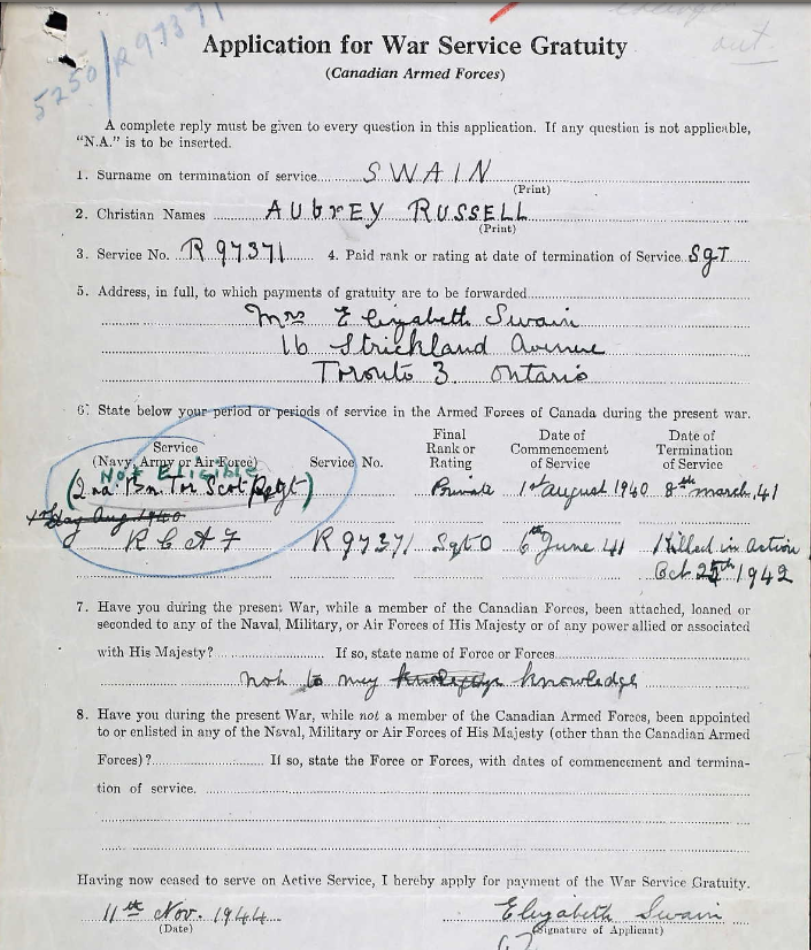 5250/R97371
out.
Application for War Service Gratuity
(Canadian Armed Forces)
A complete reply must be given to every question in this application. If any question is not applicable,
"N.A." is to be inserted.
1. Surname on termination of service.... SWAIN
(Print)
2. Christian Names AUbrEY RUSSELL
(Print)
3. Service No. R 97371 4. Paid rank or rating at date of termination of Service. SgT
5. Address, in full, to which payments of gratuity are to be forwarded
Mrs Elizabeth Swain
16 Strickland Avenue
Toronto 3. Ontario
6. State below your period or periods of service in the Armed Forces of Canada during the present war.
Service
(Navy, Army or Air Force) Service No. Final Rank or Rating Date of Commencement of Service Date of Termination of Service
Not Eligible
(2nd. Bn. Tor Scot Regt) Private 1st August 1940 8th march, 41
Aug 1940
R C A F R 97371 Sgt O 6th June 41 Killed in Action
Oct 25th 1942
7. Have you during the present War, while a member of the Canadian Forces, been attached, loaned or
seconded to any of the Naval, Military, or Air Forces of His Majesty or of any power allied or associated
with His Majesty? If so, state name of Force or Forces
not to my knowledge
8. Have you during the present War, while not a member of the Canadian Armed Forces, been appointed
to or enlisted in any of the Naval, Military or Air Forces of His Majesty (other than the Canadian Armed
Forces)? If so, state the Force or Forces, with dates of commencement and termina-
tion of service.
Having now ceased to serve on Active Service, I hereby apply for payment of the War Service Gratuity.
11th Nov. 1944 Elizabeth Swain
(Date) (Signature of Applicant)